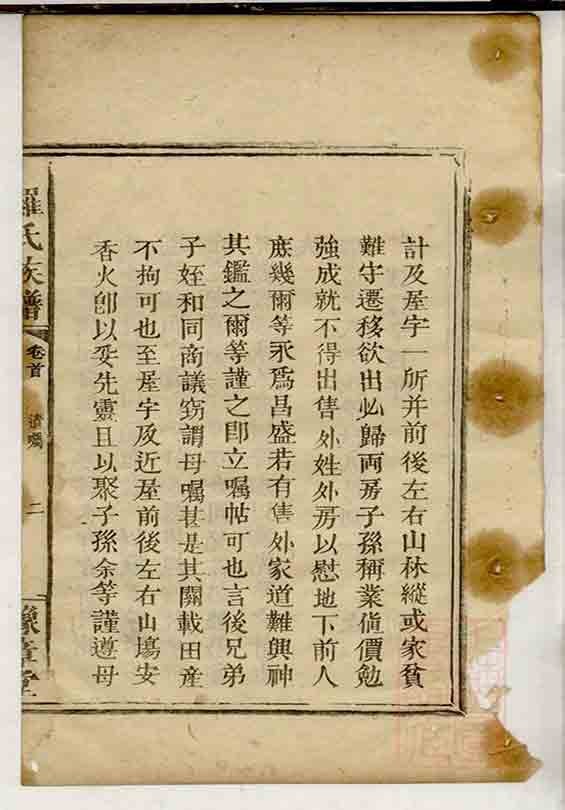 計及屋宇一所并前後左右山林縱或家貧
難守遷移欲出必歸両房子孫稱業値價勉
強成就不得出售外姓外房以慰地下前人
庶幾爾等永爲昌盛若有售外家道難興神
其鑑之爾等謹之即立嘱帖可也言後兄弟
子姪和同商議窃謂母嘱甚是其關載田產
不拘可也至屋宇及近屋前後左右山塲安
香火卽以妥先靈且以聚子孫余等謹遵母
羅氏族譜
卷首
遺嘱
二
豫章堂